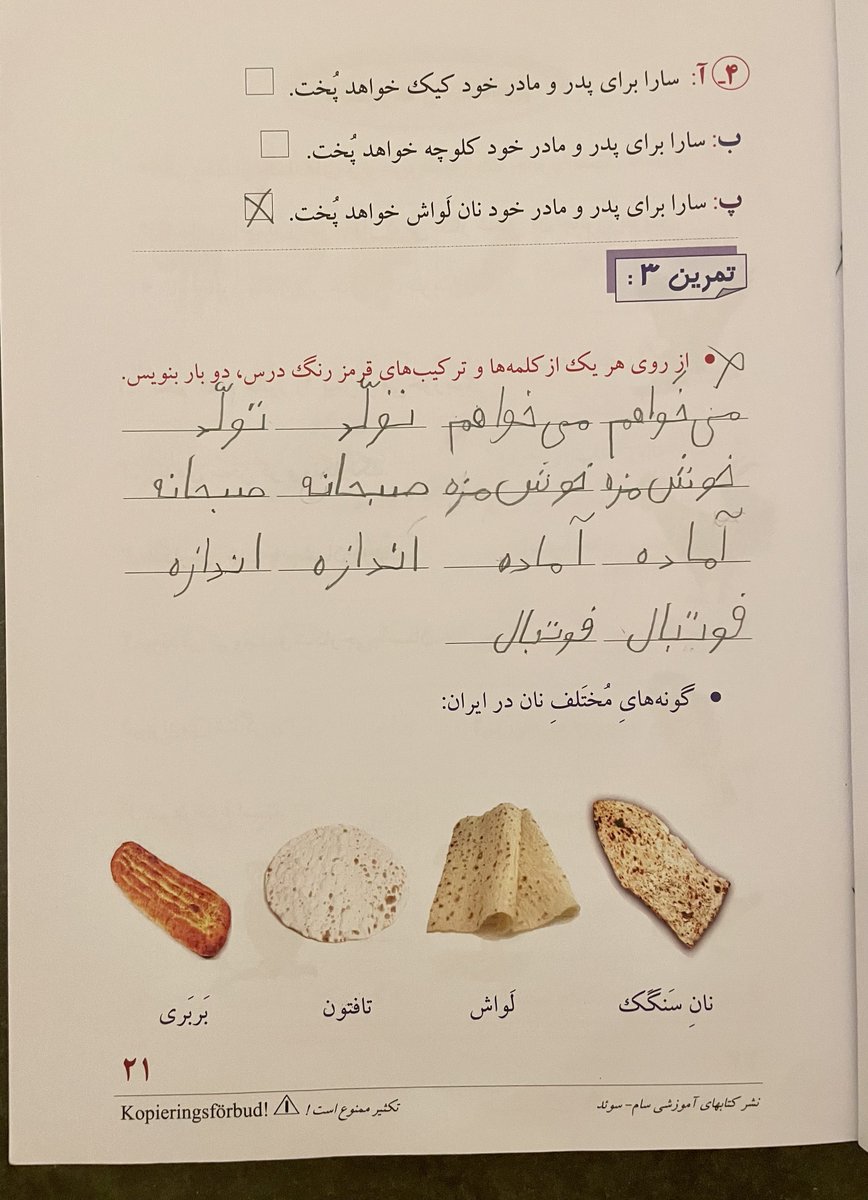 ۴ـ آ: سارا برای پدر و مادر خود کیک خواهد پُخت.
ب: سارا برای پدر و مادر خود کلوچه خواهد پُخت.
پ: سارا برای پدر و مادر خود نان لَواش خواهد پُخت.
تمرین ۳ :
• از روی هر یک از کلمه‌ها و ترکیب‌های قرمز رنگ درس، دو بار بنویس.
می‌خواهم می‌خواهم تولّد تولّد
خوش‌مزه خوش‌مزه صبحانه صبحانه
آماده آماده اندازه اندازه
فوتبال فوتبال
• گونه‌هایِ مُختَلفِ نان در ایران:
نانِ سَنگَک لَواش تافتون بَربَری
۲۱
نشر کتابهای آموزشی سام- سوئد تکثیر ممنوع است! Kopieringsförbud!